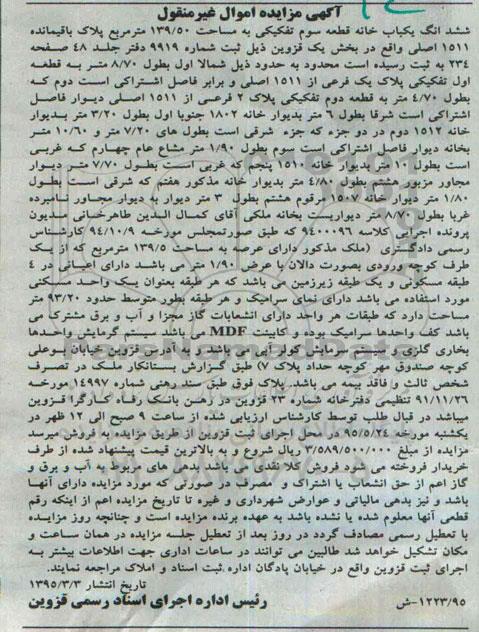 آگهی مزایده اموال غیرمنقول
ششد انگ یکباب خانه قطعه سوم تفکیکی به مساحت ۱۳۹/۵۰ مترمربع پلاک باقیمانده
۱۵۱۱ اصلی واقع در بخش یک قزوین ذیل ثبت شماره ۹۹۱۹ دفتر جلد ۴۸ صفحه
۲۳۴ به ثبت رسیده است محدود به حدود ذیل شمالا اول بطول ۸/۷۰ متر به قطعه
اول تفکیکی پلاک یک فرعی از ۱۵۱۱ اصلی و برابر فاصل اشتراکی است دوم که
بطول ۴/۷۰ متر به قطعه دوم تفکیکی پلاک ۲ فرعی از ۱۵۱۱ اصلی دیوار فاصل
اشتراکی است شرقا بطول ۶ متر بدیوار خانه ۱۸۰۲ جنوبا اول بطول ۳/۲۰ متر بدیوار
خانه ۱۵۱۲ دوم در دو جزء که جزء شرقی است بطول های ۷/۲۰ متر و ۱۰/۶۰ متر
بخانه دیوار فاصل اشتراکی است سوم بطول ۱/۹۰ متر مشاع عام چهارم که غربی
است بطول ۱۰ متر بدیوار خانه ۱۵۱۰ پنجم که غربی است بطول ۷/۷۰ متر دیوار
مجاور مزبور هشتم بطول ۴/۸۰ متر بدیوار خانه مذکور هفتم که شرقی است بطول
۱/۸۰ متر دیوار خانه ۱۵۰۷ مرقوم هشتم بطول ۳ متر دیوار به دیوار مجاور نامبرده
غربا بطول ۸/۷۰ متر دیواریست بخانه ملکی آقای کمال الدین طاهرخانی مدیون
پرونده اجرایی کلاسه ۹۴۰۰۰۹۶ که طبق صورتمجلس مورخه ۹۴/۱۰/۹ کارشناس
رسمی دادگستری (ملک مذکور دارای عرصه به مساحت ۱۳۹/۵ مترمربع که از یک
طرف کوچه ورودی بصورت دالان با عرض ۱/۹۰ متر می باشد دارای اعیانی در ۴
طبقه مسکونی و یک طبقه زیرزمین می باشد که هر طبقه بعنوان یک واحد مسکنی
مورد استفاده می باشد دارای نمای سرامیک و هر طبقه بطور متوسط حدود ۹۳/۲۰ متر
مساحت دارد که طبقات هر واحد دارای انشعابات گاز مجزا و آب و برق مشترک می
باشد کف واحدها سرامیک بوده و کابینت MDF می باشد سیستم گرمایش واحدها
بخاری گازی و سیستم سرمایش کولر آبی می باشد) و به آدرس قزوین خیابان بوعلی
کوچه صندوق مهر کوچه حداد پلاک ۷) طبق گزارش بستانکار ملک در تصرف
شخص ثالث و فاقد بیمه می باشد. پلاک فوق طبق سند رهنی شماره ۱۴۹۹۷ مورخه
۹۱/۱۱/۲۶ تنظیمی دفترخانه شماره ۲۳ قزوین در رهن بانک رفاه کارگرا قزوین
میباشد در قبال طلب توسط کارشناس ارزیابی شده از ساعت ۹ صبح الی ۱۲ ظهر در
یکشنبه مورخه ۹۵/۵/۲۴ در محل اجرای ثبت قزوین از طریق مزایده به فروش میرسد
مزایده از مبلغ ۳/۵۸۹/۵۰۰/۰۰۰ ریال شروع و به بالاترین قیمت پیشنهاد شده از طرف
خریدار فروخته می شود فروش کلا نقدی می باشد بدهی های مربوط به آب و برق و
گاز اعم از حق انشعاب یا اشتراک و مصرف در صورتی که مورد مزایده دارای آنها
باشد و نیز بدهی مالیاتی و عوارض شهرداری و غیره تا تاریخ مزایده اعم از اینکه رقم
قطعی آنها معلوم شده یا نشده باشد به عهده برنده مزایده است و چنانچه روز مزایده
با تعطیل رسمی مصادف گردد در روز بعد از تعطیل جلسه مزایده در همان ساعت و
مکان تشکیل خواهد شد طالبین می توانند در ساعات اداری جهت اطلاعات بیشتر به
اجرای ثبت قزوین واقع در خیابان پادگان اداره ثبت اسناد و املاک مراجعه نمایند.
تاریخ انتشار ۱۳۹۵/۳/۳
رئیس اداره اجرای اسناد رسمی قزوین
۱۲۲۳/۹۵-ش